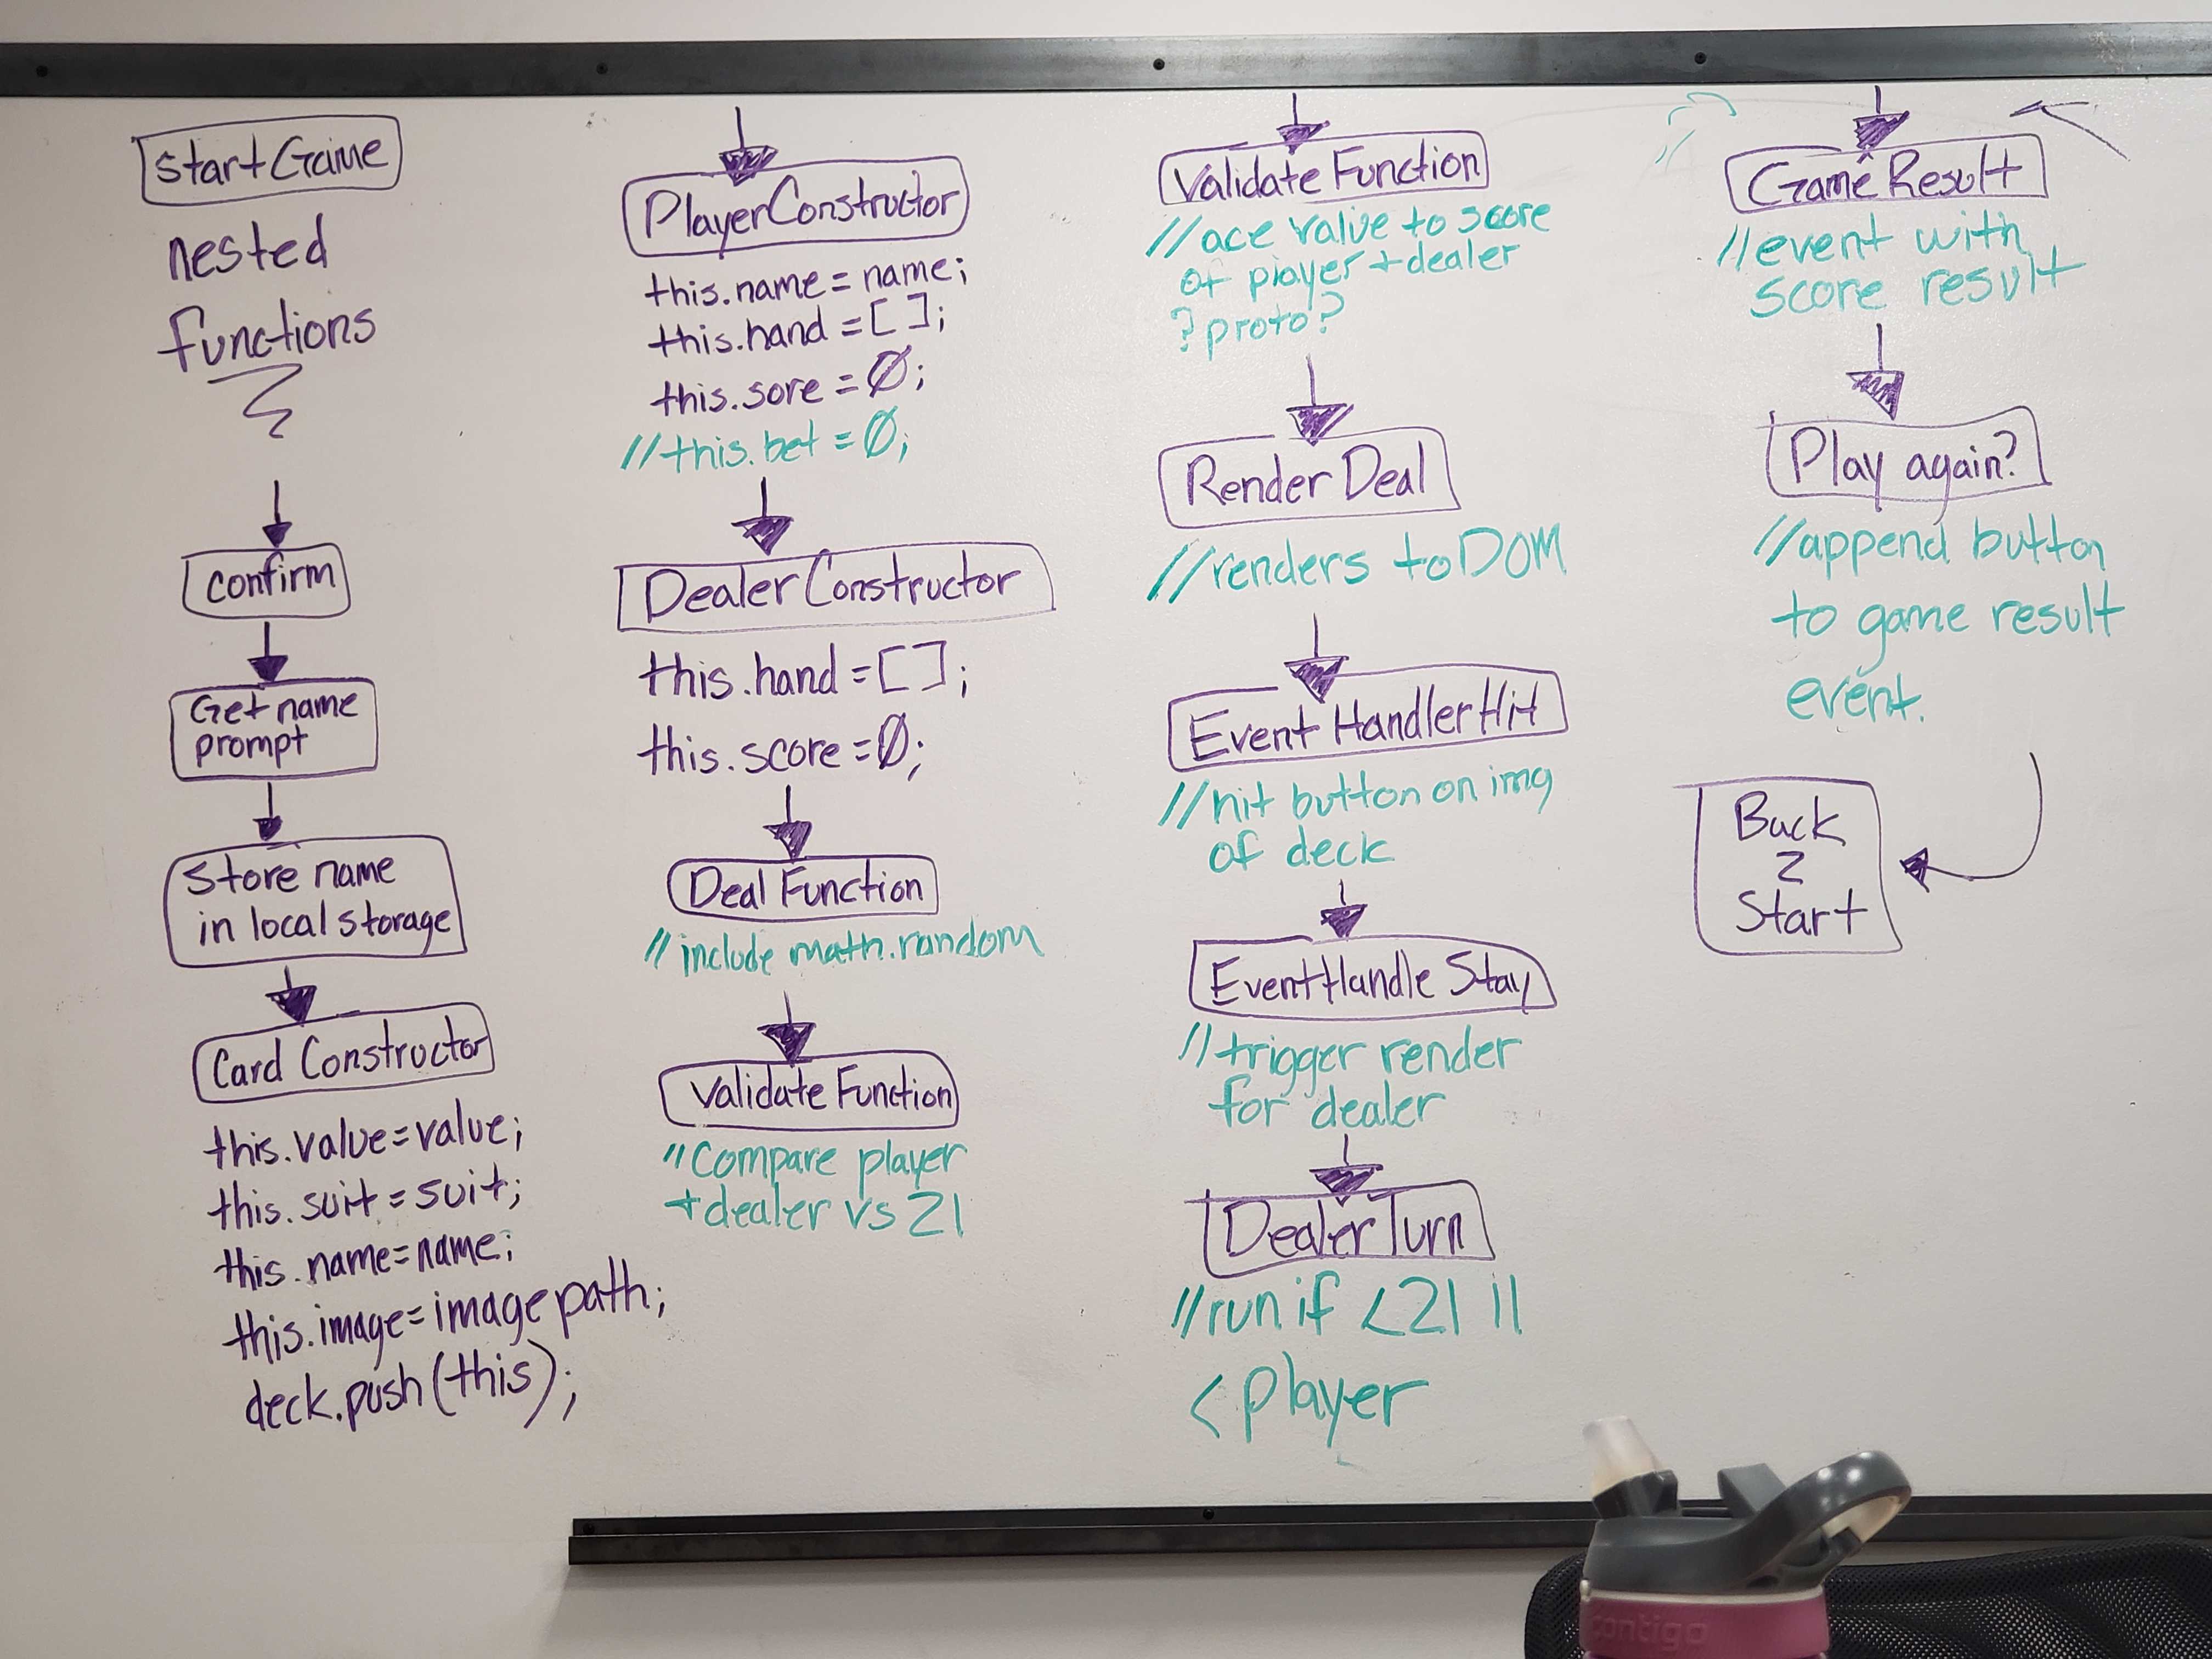 startGame
nested
functions
confirm
Get name
prompt
Store name
in local storage
Card Constructor
this.value=value;
this.suit=suit;
this.name=name;
this.image=image path;
deck.push(this);
PlayerConstructor
this.name=name;
this.hand=[];
this.sore=0;
//this.bet=0;
Dealer Constructor
this.hand=[];
this.score=0;
Deal Function
// include math.random
Validate Function
// Compare player
+dealer vs 21
Validate Function
//ace value to score
of player+dealer
?proto?
Render Deal
//renders to DOM
Event Handler Hit
//hit button on img
of deck
EventHandle Stay
//trigger render
for dealer
Dealer Turn
//run if <21 ||
<Player
Game Result
//event with
score result
Play again?
//append button
to game result
event.
Back
2
Start
contigo